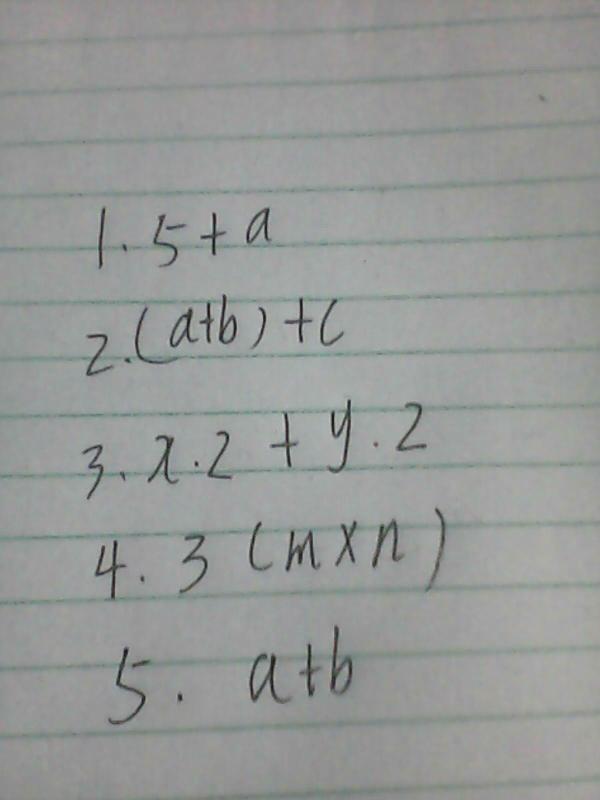 1. 5 + a
2. (a+b) + c
3. x . 2 + y . 2
4. 3 (m x n)
5. a+b